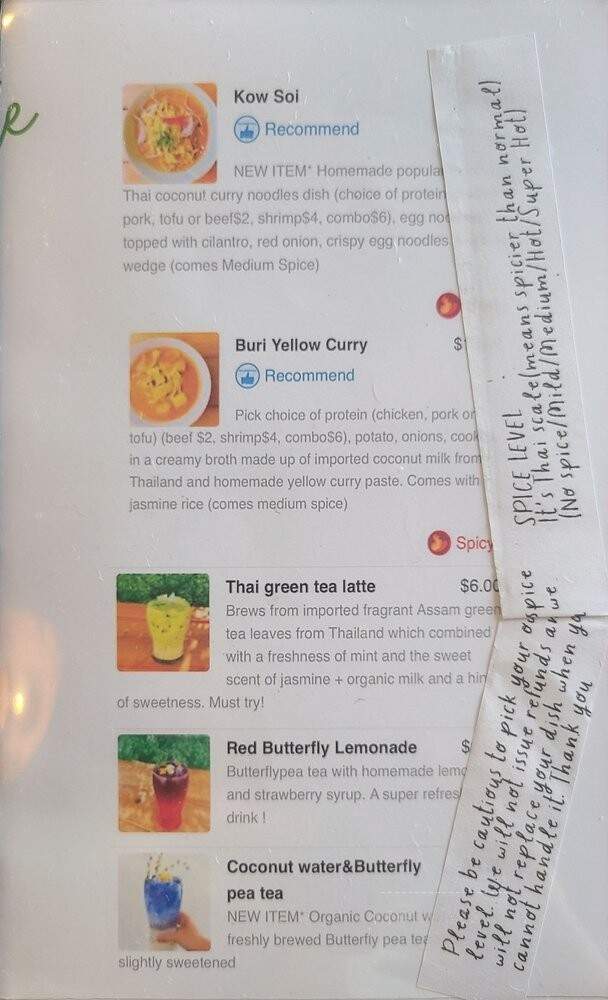 Kow Soi
Recommend
NEW ITEM* Homemade
Thai coconut curry noodles dish (choice of protein
pork, tofu or beef$2, shrimp$4, combo$6), egg
topped with cilantro, red onion, crispy egg noodles
wedge (comes Medium Spice)
Buri Yellow Curry
$
Recommend
Pick choice of protein (chicken, pork or
tofu) (beef $2, shrimp$4, combo$6), potato, onions,
in a creamy broth made up of imported coconut milk from
Thailand and homemade yellow curry paste. Comes with
jasmine rice (comes medium spice)
Spicy
Thai green tea latte
$6.00
Brews from imported fragrant Assam green
tea leaves from Thailand which combined
with a freshness of mint and the sweet
scent of jasmine + organic milk and a
of sweetness. Must try!
Red Butterfly Lemonade
$
Butterflypea tea with homemade
and strawberry syrup. A super
drink !
Coconut water&Butterfly
pea tea
NEW ITEM* Organic Coconut
freshly brewed Butterfly pea tea
slightly sweetened
SPICE LEVEL
It's Thai scale(means spicier than normal)
(No spice/Mild/Medium/Hot/Super Hot)
Please be cautious to pick your spice
level. We will not issue refunds we
will not replace your dish when
cannot handle it. Thank you